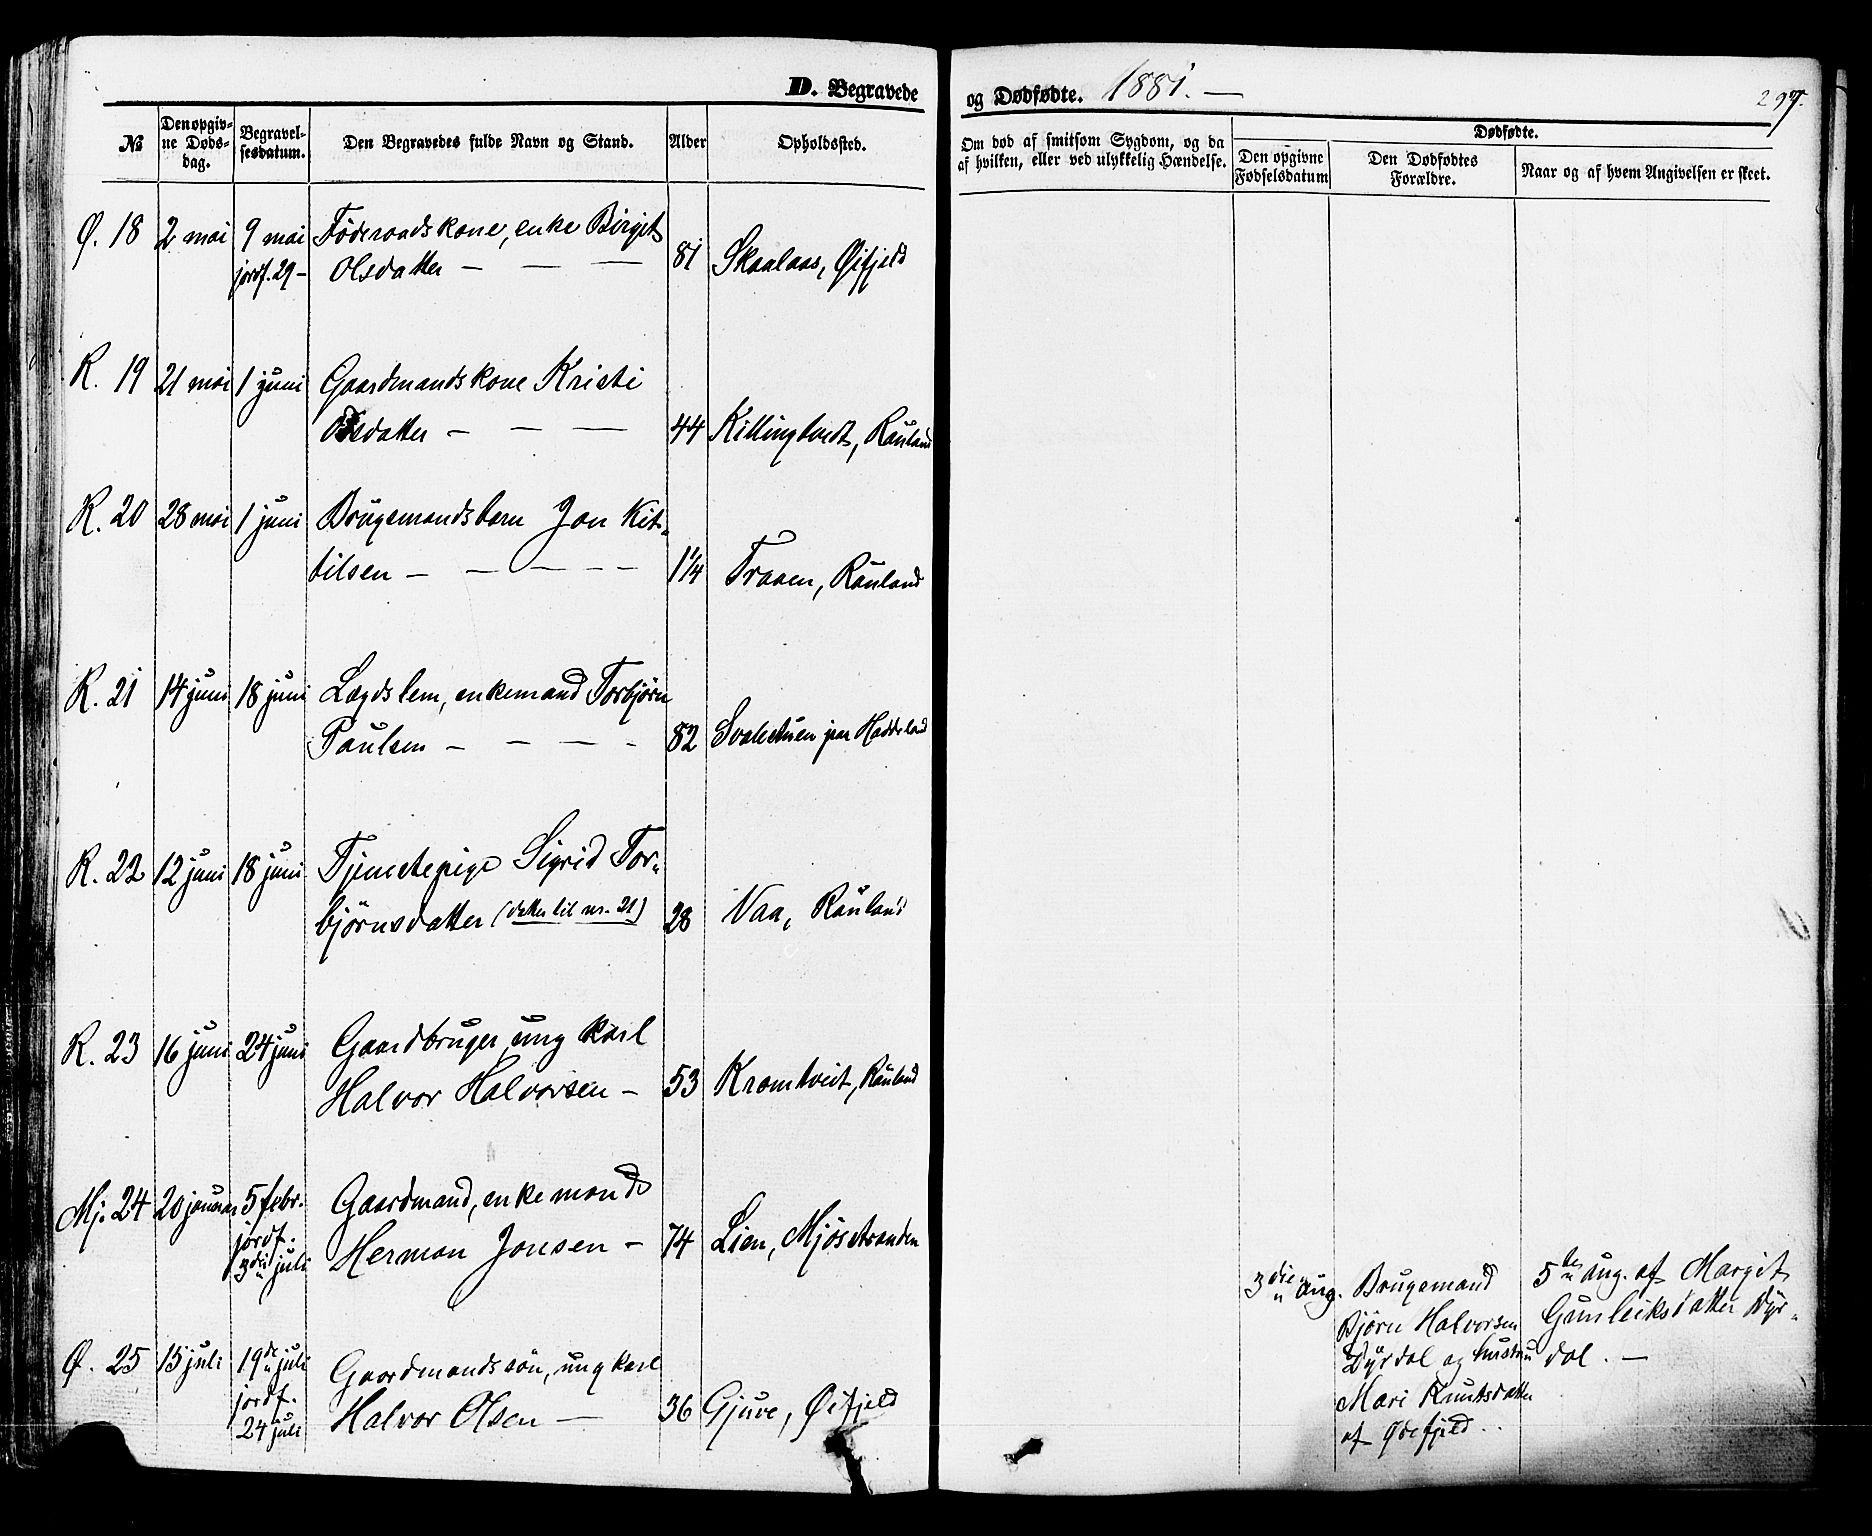 D. Begravede
og Dødfødte. 1881. —
297.
№
Den opgiv-
ne Døds-
dag.
Begravel-
sesdatum.
Den Begravedes fulde Navn og Stand.
Alder
Opholdssted.
Om død af smitsom Sygdom, og da
af hvilken, eller ved ulykkelig Hændelse.
Dødfødte.
Den opgivne
Fødselsdatum
Den Dødfødtes
Forældre.
Naar og af hvem Angivelsen er skeet.
Ø. 18 2 mai 9 mai Føderaadskone, enke Birgit
jordf. 29 – Olsdatter — — — 81 Skaalaas, Øifjeld
R. 19 21 mai 1 juni Gaardmandskone Kristi
Olsdatter — — — 44 Killingtvedt, Rauland
R. 20 28 mai 1 juni Brugsmandsbarn Jon Kit-
tilsen — — — – – 1¼ Traaen, Rauland
R. 21 14 juni 18 juni Lægdslem, enkemand Torbjørn
Paulsen — — — – 82 paa Haddeland
R. 22 12 juni 18 juni Tjenestepige Sigrid Tor-
bjørnsdatter (datter til nr. 21) 28 Vaa, Rauland
R. 23 16 juni 24 juni Gaardbruger, ung karl
Halvor Halvorsen — 53 Kromtveit, Rauland
Mj. 24 20 januar 5 febr. Gaardmand, enkemand
jordf.
3die juli Herman Jonsen — 74 Lien, Mjøsstranden
Ø. 25 15 juli 19de juli Gaardmandssøn, ung karl
jordf.
24 juli Halvor Olsen — 36 Gjuve, Øifjeld
3die aug. Brugsmand
Bjørn Halvorsen
Dyrdal og hustru
Mari Knutsdatter
af Øifjeld.
5te aug. af Margit
Gunleiksdatter Dyr-
dal. —